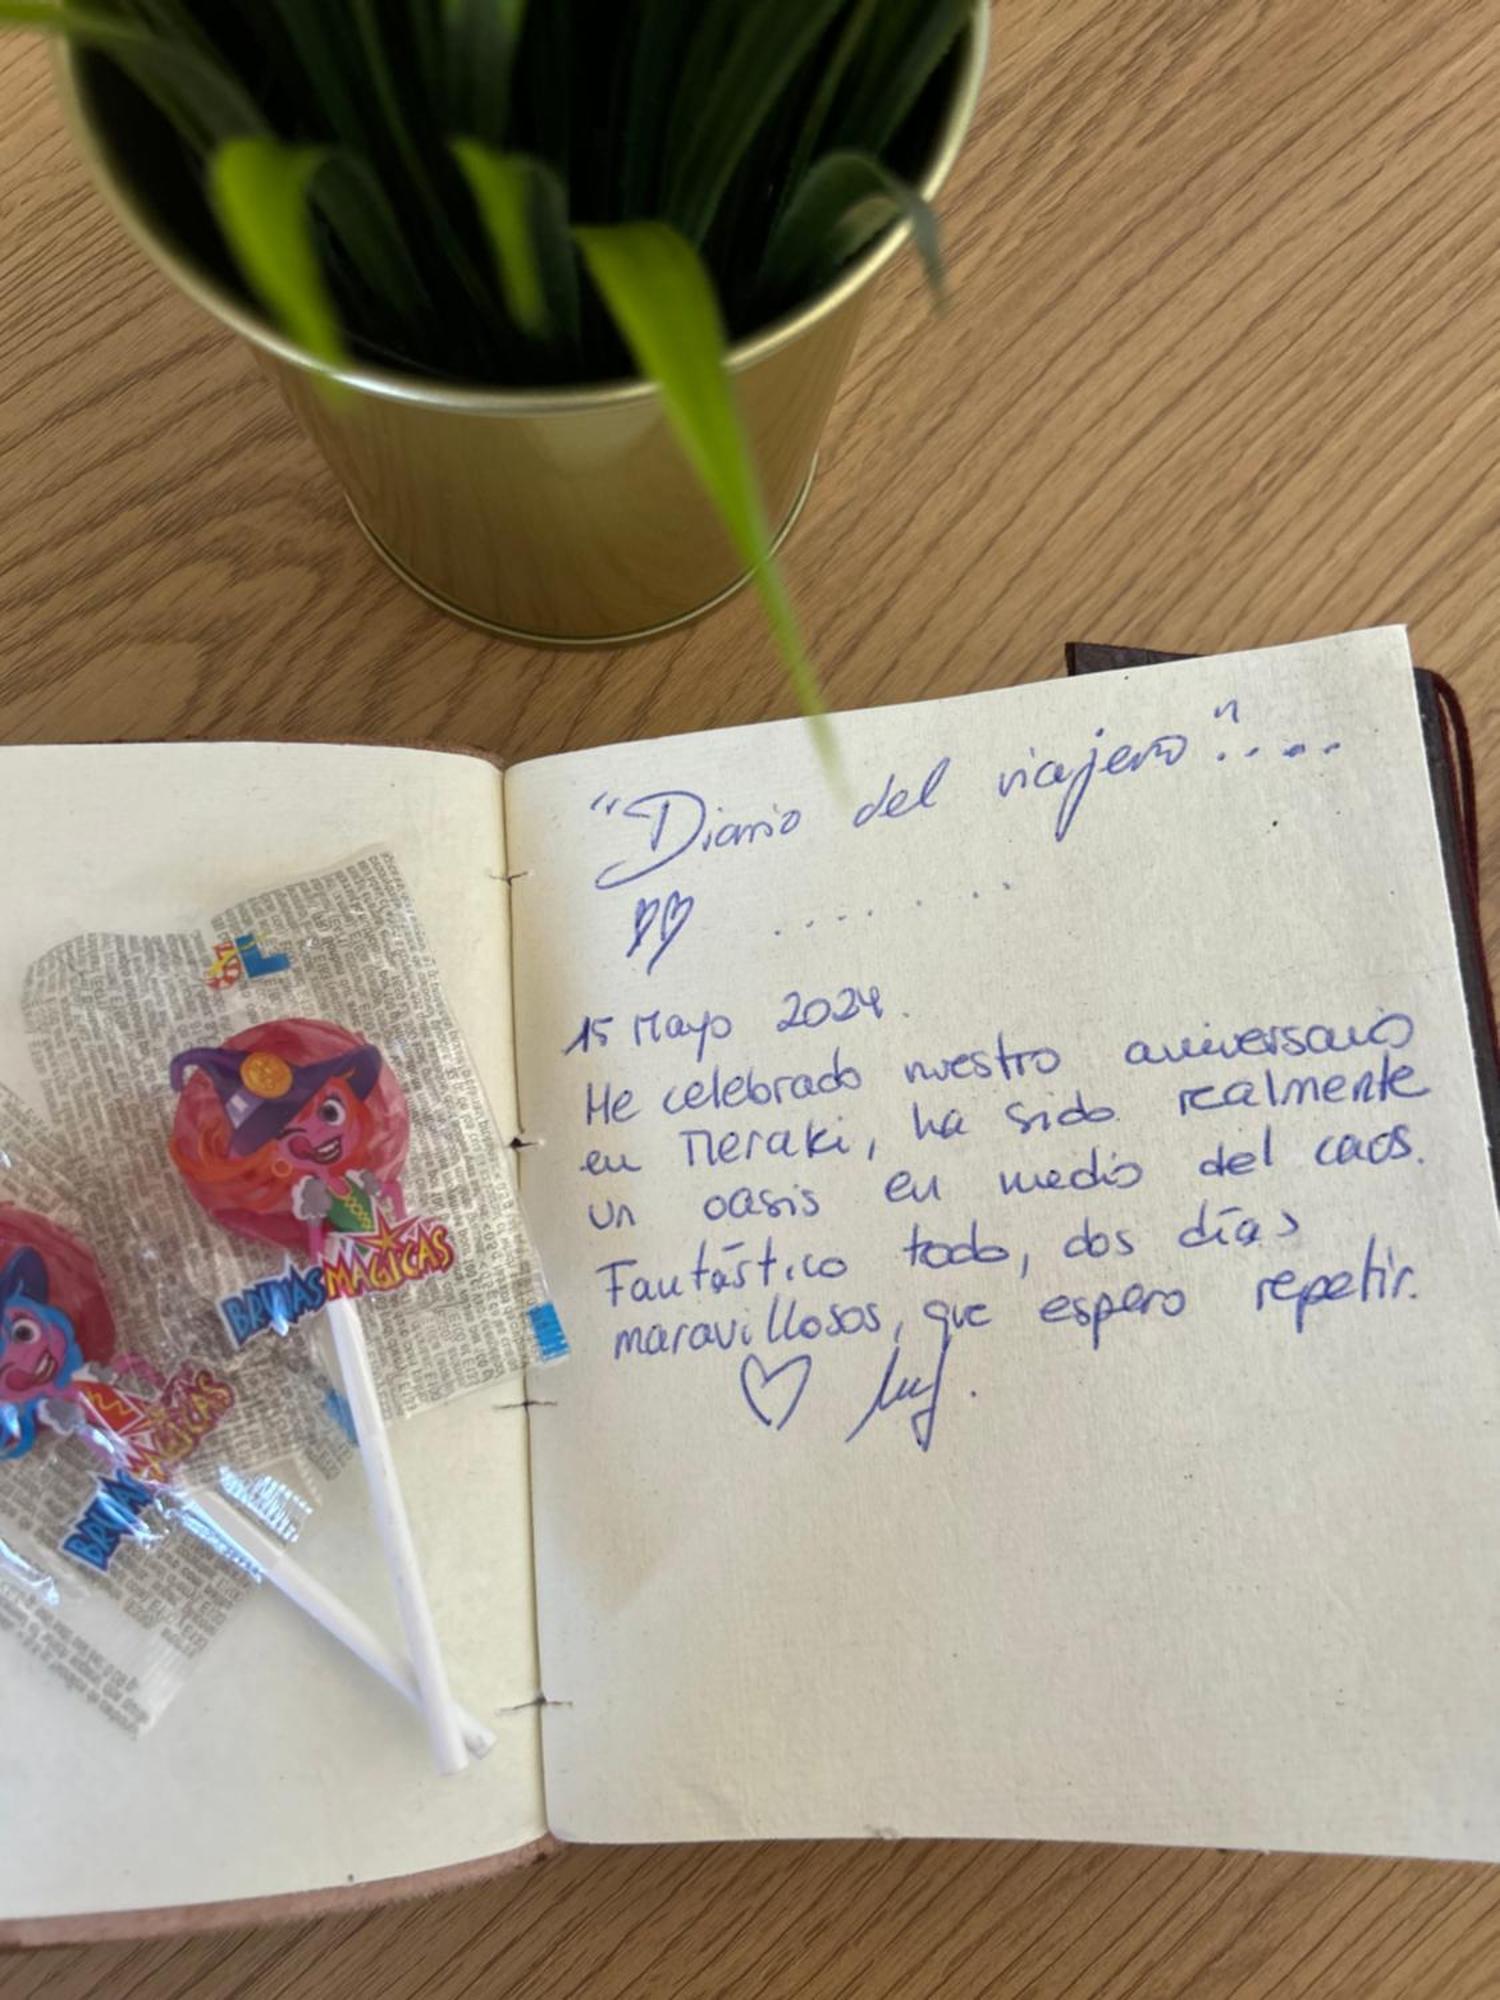 "Diario del viajero"....
15 Mayo 2024.
He celebrado nuestro aniversario
en Meraki, ha sido realmente
un oasis en medio del caos.
Fantástico todo, dos días
maravillosos, que espero repetir.
BRUJAS MAGICAS
BRUJAS
MAGICAS